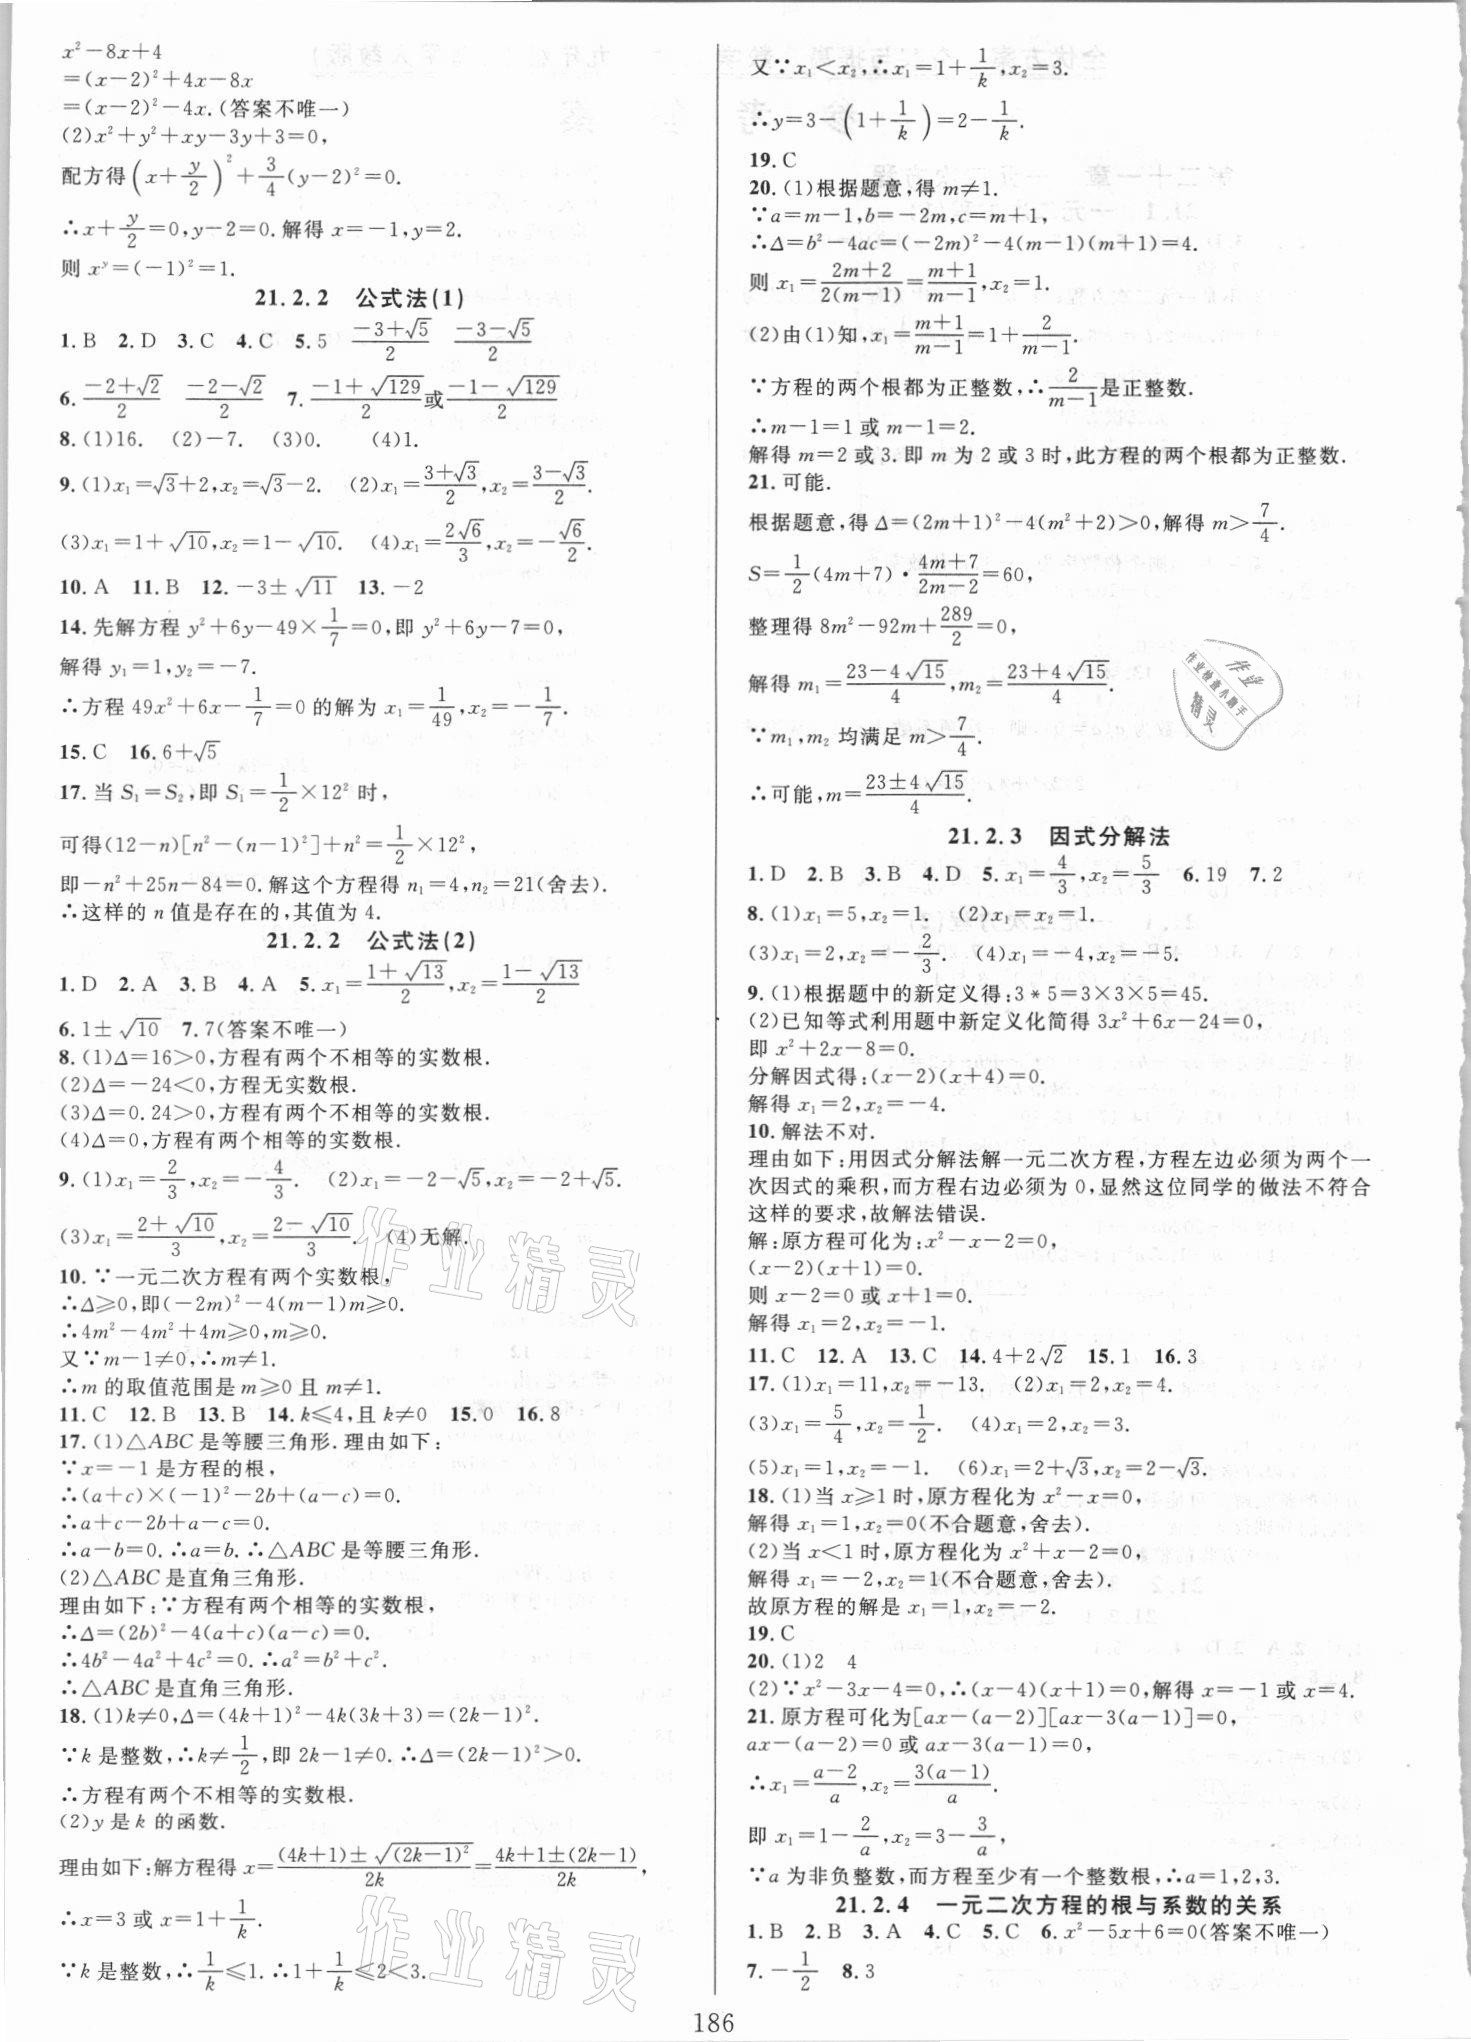 x²-8x+4
=(x-2)²+4x-8x
=(x-2)²-4x.(答案不唯一)
(2)x²+y²+xy-3y+3=0,
配方得(x+y/2)²+3/4(y-2)²=0.
∴x+y/2=0,y-2=0.解得 x=-1,y=2.
则 xʸ=(-1)²=1.
21.2.2 公式法(1)
1.B 2.D 3.C 4.C 5.5 (-3+√5)/2 (-3-√5)/2
6.(-2+√2)/2 (-2-√2)/2 7.(-1+√129)/2或(-1-√129)/2
8.(1)16. (2)-7. (3)0. (4)1.
9.(1)x₁=√3+2,x₂=√3-2. (2)x₁=(3+√3)/2,x₂=(3-√3)/2.
(3)x₁=1+√10,x₂=1-√10. (4)x₁=2√6/3,x₂=-√6/2.
10.A 11.B 12.-3±√11 13.-2
14.先解方程 y²+6y-49×1/7=0,即 y²+6y-7=0,
解得 y₁=1,y₂=-7.
∴方程 49x²+6x-1/7=0 的解为 x₁=1/49,x₂=-1/7.
15.C 16.6+√5
17.当 S₁=S₂,即 S₁=1/2×12² 时,
可得(12-n)[n²-(n-1)²]+n²=1/2×12²,
即-n²+25n-84=0.解这个方程得 n₁=4,n₂=21(舍去).
∴这样的 n 值是存在的,其值为 4.
21.2.2 公式法(2)
1.D 2.A 3.B 4.A 5.x₁=(1+√13)/2,x₂=(1-√13)/2
6.1±√10 7.7(答案不唯一)
8.(1)Δ=16>0,方程有两个不相等的实数根.
(2)Δ=-24<0,方程无实数根.
(3)Δ=0.24>0,方程有两个不相等的实数根.
(4)Δ=0,方程有两个相等的实数根.
9.(1)x₁=2/3,x₂=-4/3. (2)x₁=-2-√5,x₂=-2+√5.
(3)x₁=(2+√10)/3,x₂=(2-√10)/3. (4)无解.
10.∵一元二次方程有两个实数根,
∴Δ≥0,即(-2m)²-4(m-1)m≥0.
∴4m²-4m²+4m≥0,m≥0.
又∵m-1≠0,∴m≠1.
∴m 的取值范围是 m≥0 且 m≠1.
11.C 12.B 13.B 14.k≤4,且 k≠0 15.0 16.8
17.(1)△ABC 是等腰三角形.理由如下:
∵x=-1 是方程的根,
∴(a+c)×(-1)²-2b+(a-c)=0.
∴a+c-2b+a-c=0.
∴a-b=0.∴a=b.∴△ABC 是等腰三角形.
(2)△ABC 是直角三角形.
理由如下:∵方程有两个相等的实数根,
∴Δ=(2b)²-4(a+c)(a-c)=0.
∴4b²-4a²+4c²=0.∴a²=b²+c².
∴△ABC 是直角三角形.
18.(1)k≠0,Δ=(4k+1)²-4k(3k+3)=(2k-1)².
∵k 是整数,∴k≠1/2,即 2k-1≠0.∴Δ=(2k-1)²>0.
∴方程有两个不相等的实数根.
(2)y 是 k 的函数.
理由如下:解方程得 x=((4k+1)±√(2k-1)²)/2k=(4k+1±(2k-1))/2k,
∴x=3 或 x=1+1/k.
∵k 是整数,∴1/k≤1.∴1+1/k≤2<3.
又∵x₁<x₂,∴x₁=1+1/k,x₂=3.
∴y=3-(1+1/k)=2-1/k.
19.C
20.(1)根据题意,得 m≠1.
∵a=m-1,b=-2m,c=m+1,
∴Δ=b²-4ac=(-2m)²-4(m-1)(m+1)=4.
则 x₁=(2m+2)/2(m-1)=(m+1)/(m-1),x₂=1.
(2)由(1)知,x₁=(m+1)/(m-1)=1+2/(m-1).
∵方程的两个根都为正整数,∴2/(m-1)是正整数.
∴m-1=1 或 m-1=2.
解得 m=2 或 3.即 m 为 2 或 3 时,此方程的两个根都为正整数.
21.可能.
根据题意,得 Δ=(2m+1)²-4(m²+2)>0,解得 m>7/4.
S=1/2(4m+7)·(4m+7)/(2m-2)=60,
整理得 8m²-92m+289/2=0,
解得 m₁=(23-4√15)/4,m₂=(23+4√15)/4.
∵m₁,m₂ 均满足 m>7/4.
∴可能,m=(23±4√15)/4.
21.2.3 因式分解法
1.D 2.B 3.B 4.D 5.x₁=4/3,x₂=5/3 6.19 7.2
8.(1)x₁=5,x₂=1. (2)x₁=x₂=1.
(3)x₁=2,x₂=-2/3. (4)x₁=-4,x₂=-5.
9.(1)根据题中的新定义得:3*5=3×3×5=45.
(2)已知等式利用题中新定义化简得 3x²+6x-24=0,
即 x²+2x-8=0.
分解因式得:(x-2)(x+4)=0.
解得 x₁=2,x₂=-4.
10.解法不对.
理由如下:用因式分解法解一元二次方程,方程左边必须为两个一
次因式的乘积,而方程右边必须为 0,显然这位同学的做法不符合
这样的要求,故解法错误.
解:原方程可化为:x²-x-2=0,
(x-2)(x+1)=0.
则 x-2=0 或 x+1=0.
解得 x₁=2,x₂=-1.
11.C 12.A 13.C 14.4+2√2 15.1 16.3
17.(1)x₁=11,x₂=-13. (2)x₁=2,x₂=4.
(3)x₁=5/4,x₂=1/2. (4)x₁=2,x₂=3.
(5)x₁=1,x₂=-1. (6)x₁=2+√3,x₂=2-√3.
18.(1)当 x≥1 时,原方程化为 x²-x=0,
解得 x₁=1,x₂=0(不合题意,舍去).
(2)当 x<1 时,原方程化为 x²+x-2=0,
解得 x₁=-2,x₂=1(不合题意,舍去).
故原方程的解是 x₁=1,x₂=-2.
19.C
20.(1)2 4
(2)∵x²-3x-4=0,∴(x-4)(x+1)=0,解得 x=-1 或 x=4.
21.原方程可化为[ax-(a-2)][ax-3(a-1)]=0,
ax-(a-2)=0 或 ax-3(a-1)=0.
∴x₁=(a-2)/a,x₂=3(a-1)/a.
即 x₁=1-2/a,x₂=3-3/a,
∵a 为非负整数,而方程至少有一个整数根,∴a=1,2,3.
21.2.4 一元二次方程的根与系数的关系
1.B 2.B 3.A 4.C 5.C 6.x²-5x+6=0(答案不唯一)
7.-1/2 8.3
186
作业精灵
作业精灵
作业
作业检查小助手
精灵